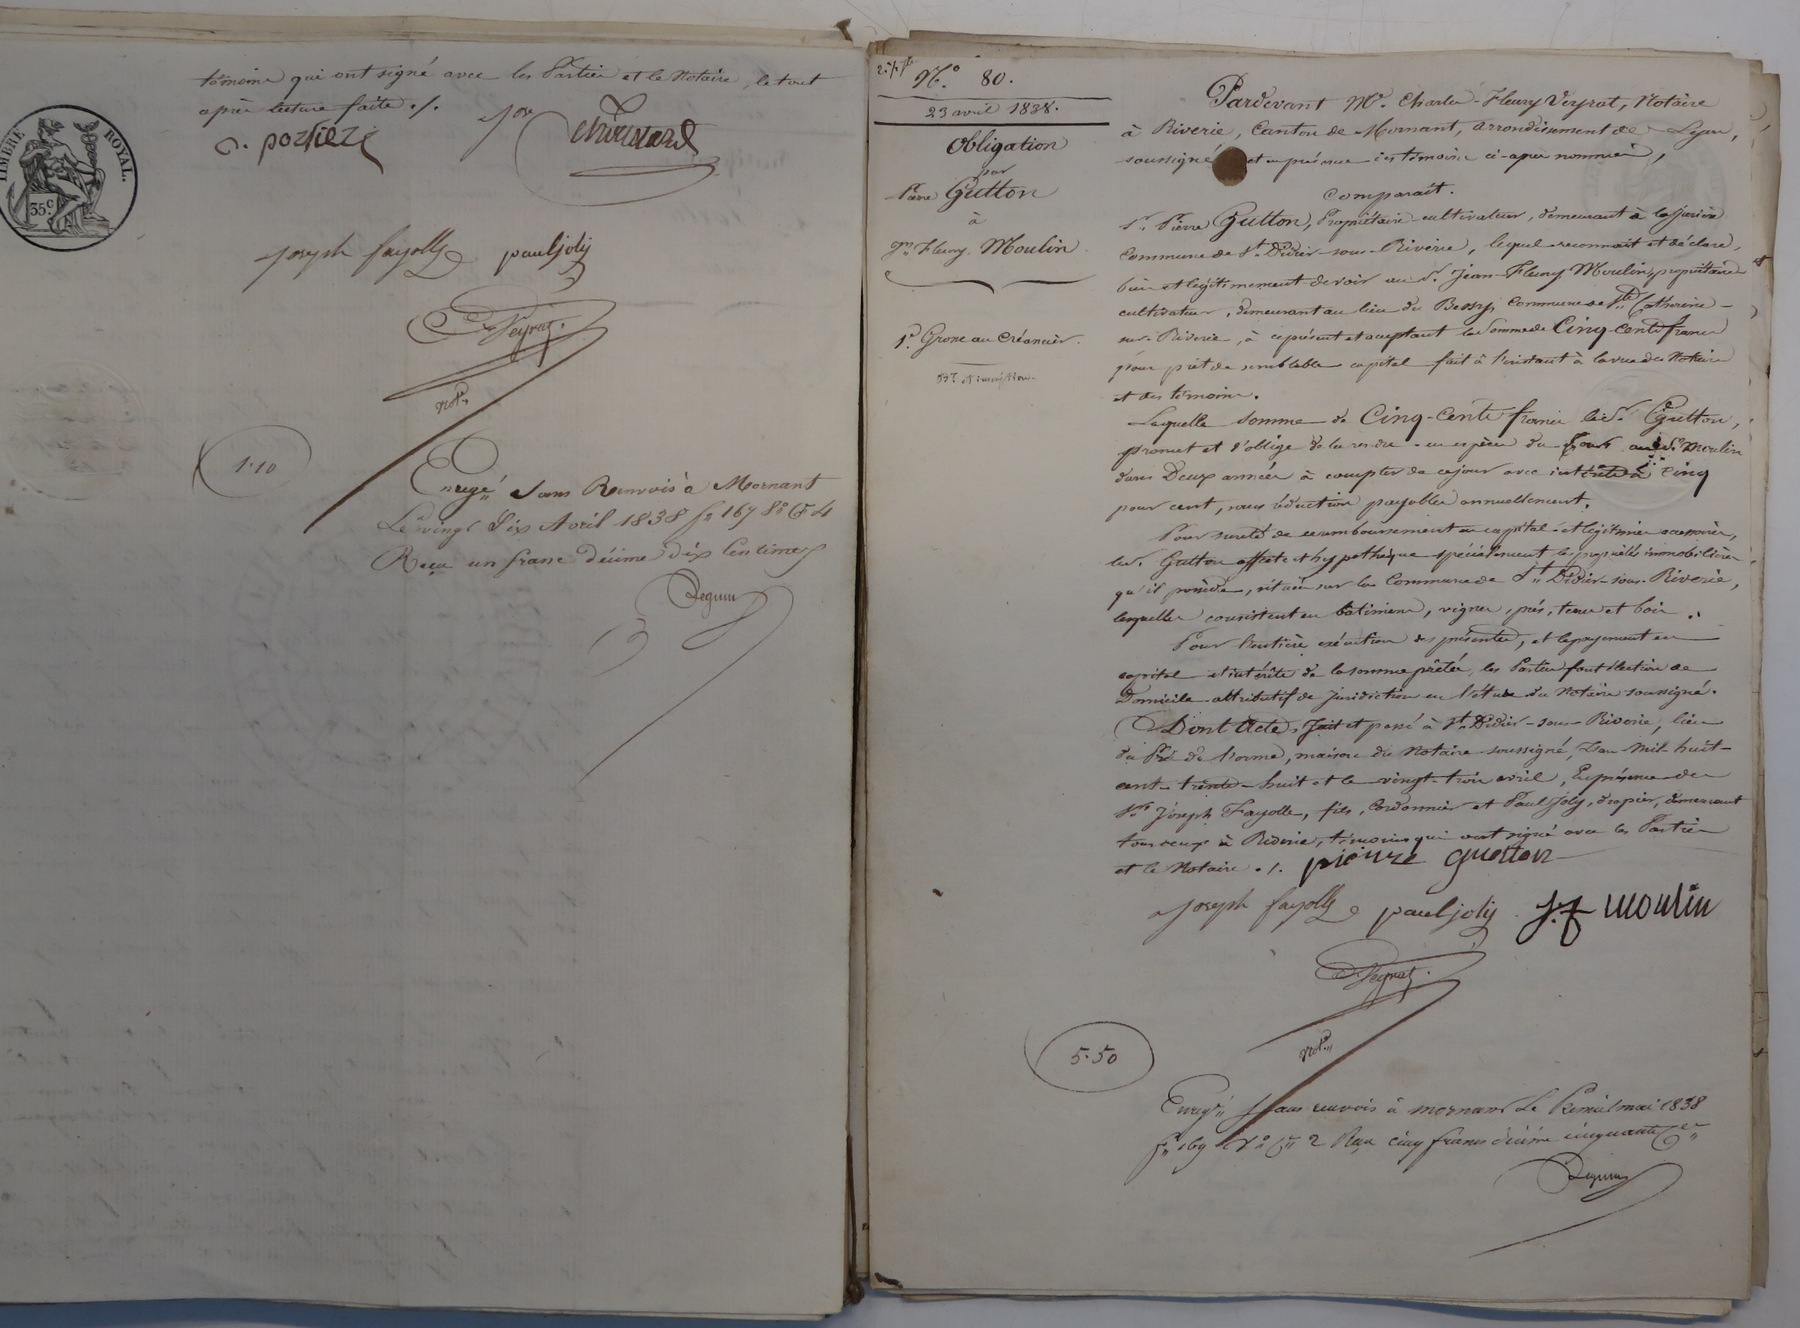 témoins qui ont signé avec les Parties et le Notaire, le tout
après lecture faite ./.
TIMBRE ROYAL.
35 c
joseph fayolle paul joly
Veyrat.
Not.re
1.10
Enregé sans Renvois à Mornant
Le vingt Six Avril 1838 fo 167 Ro Ce 4
Reçu un franc décime dix Centimes
Deguin
No. 80.
23 avril 1838.
Obligation
par
Pierre Gutton
à
Jn. Fleury Moulin
1e. Grosse au Créancier.
Pardevant Me. Charles-Fleury Veyrat, Notaire
à Riverie, Canton de Mornant, arrondissement de Lyon,
soussigné et en présence des témoins ci-après nommés,
Comparait.
Sr. Pierre Gutton, Propriétaire cultivateur, demeurant à
Commune de St. Didier-sous-Riverie, lequel reconnait et déclare,
bien et légitimement devoir au Sr. Jean-Fleury Moulin, propriétaire
cultivateur, demeurant au lieu du Bessy, Commune de Ste. Catherine-
sur-Riverie, à ce présent et acceptant la Somme de Cinq-Cents francs
pour prêt de semblable capital fait à l'instant à la vue des Notaire
et des témoins.
Laquelle somme de Cinq-Cents francs led. Sr. Gutton,
promet et s'oblige de la rendre en espèces du Cours aud. Sr. Moulin
dans Deux années à compter de ce jour avec intérêts à cinq
pour cent, sans réduction payables annuellement.
Pour sureté de remboursement en capital et légitimes accessoires,
led. Gutton affecte et hypothèque spécialement les propriétés immobilières
qu'il possède, situées sur la Commune de St. Didier-sous-Riverie,
lesquelles consistent en bâtiments, vignes, prés, terres et bois.
Pour l'entière exécution des présentes, et le payement en
capital et intérêts de la somme prêtée, les Parties font élection de
Domicile attributif de Juridiction en l'étude du Notaire soussigné.
Dont Acte, Fait et passé à St. Didier-sous-Riverie, lieu
du Pré de l'orme, maison du Notaire soussigné, L'an Mil-huit-
cent-trente-huit et le vingt-trois avril, En présence de
Srs. Joseph Fayolle, fils, Cordonnier et Paul Joly, drapier, demeurant
tous deux à Riverie, témoins qui ont signé avec les Parties
et le Notaire ./. pieurre guotton
joseph fayolle paul joly j.f moulin
Veyrat.
Not.re
5.50
Enregé sans renvois à mornant Le Premier mai 1838
fo 169 Vo Ce 2 Reçu cinq francs décime cinquante Ces
Deguin